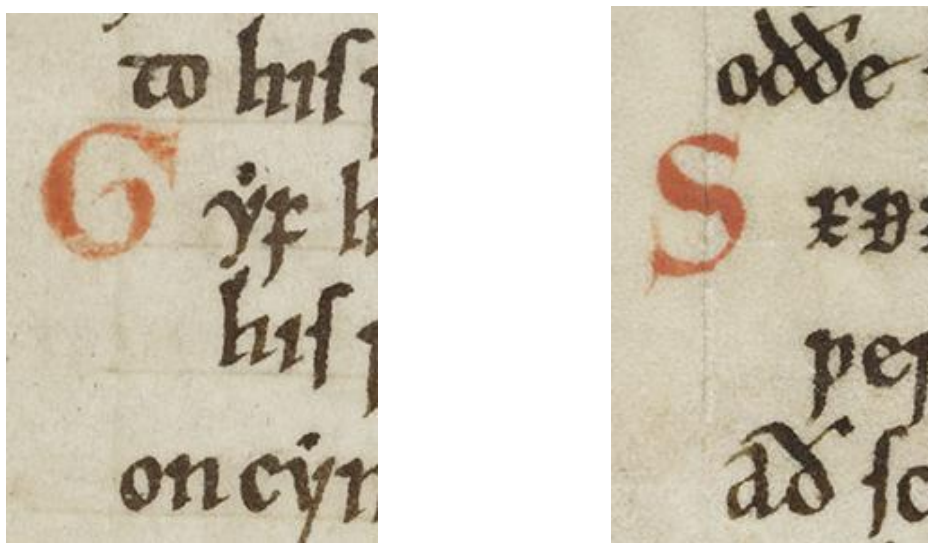 to hiſ
Gẏf h
hiſ
on cẏn
oððe
S
ƿer
að ſc